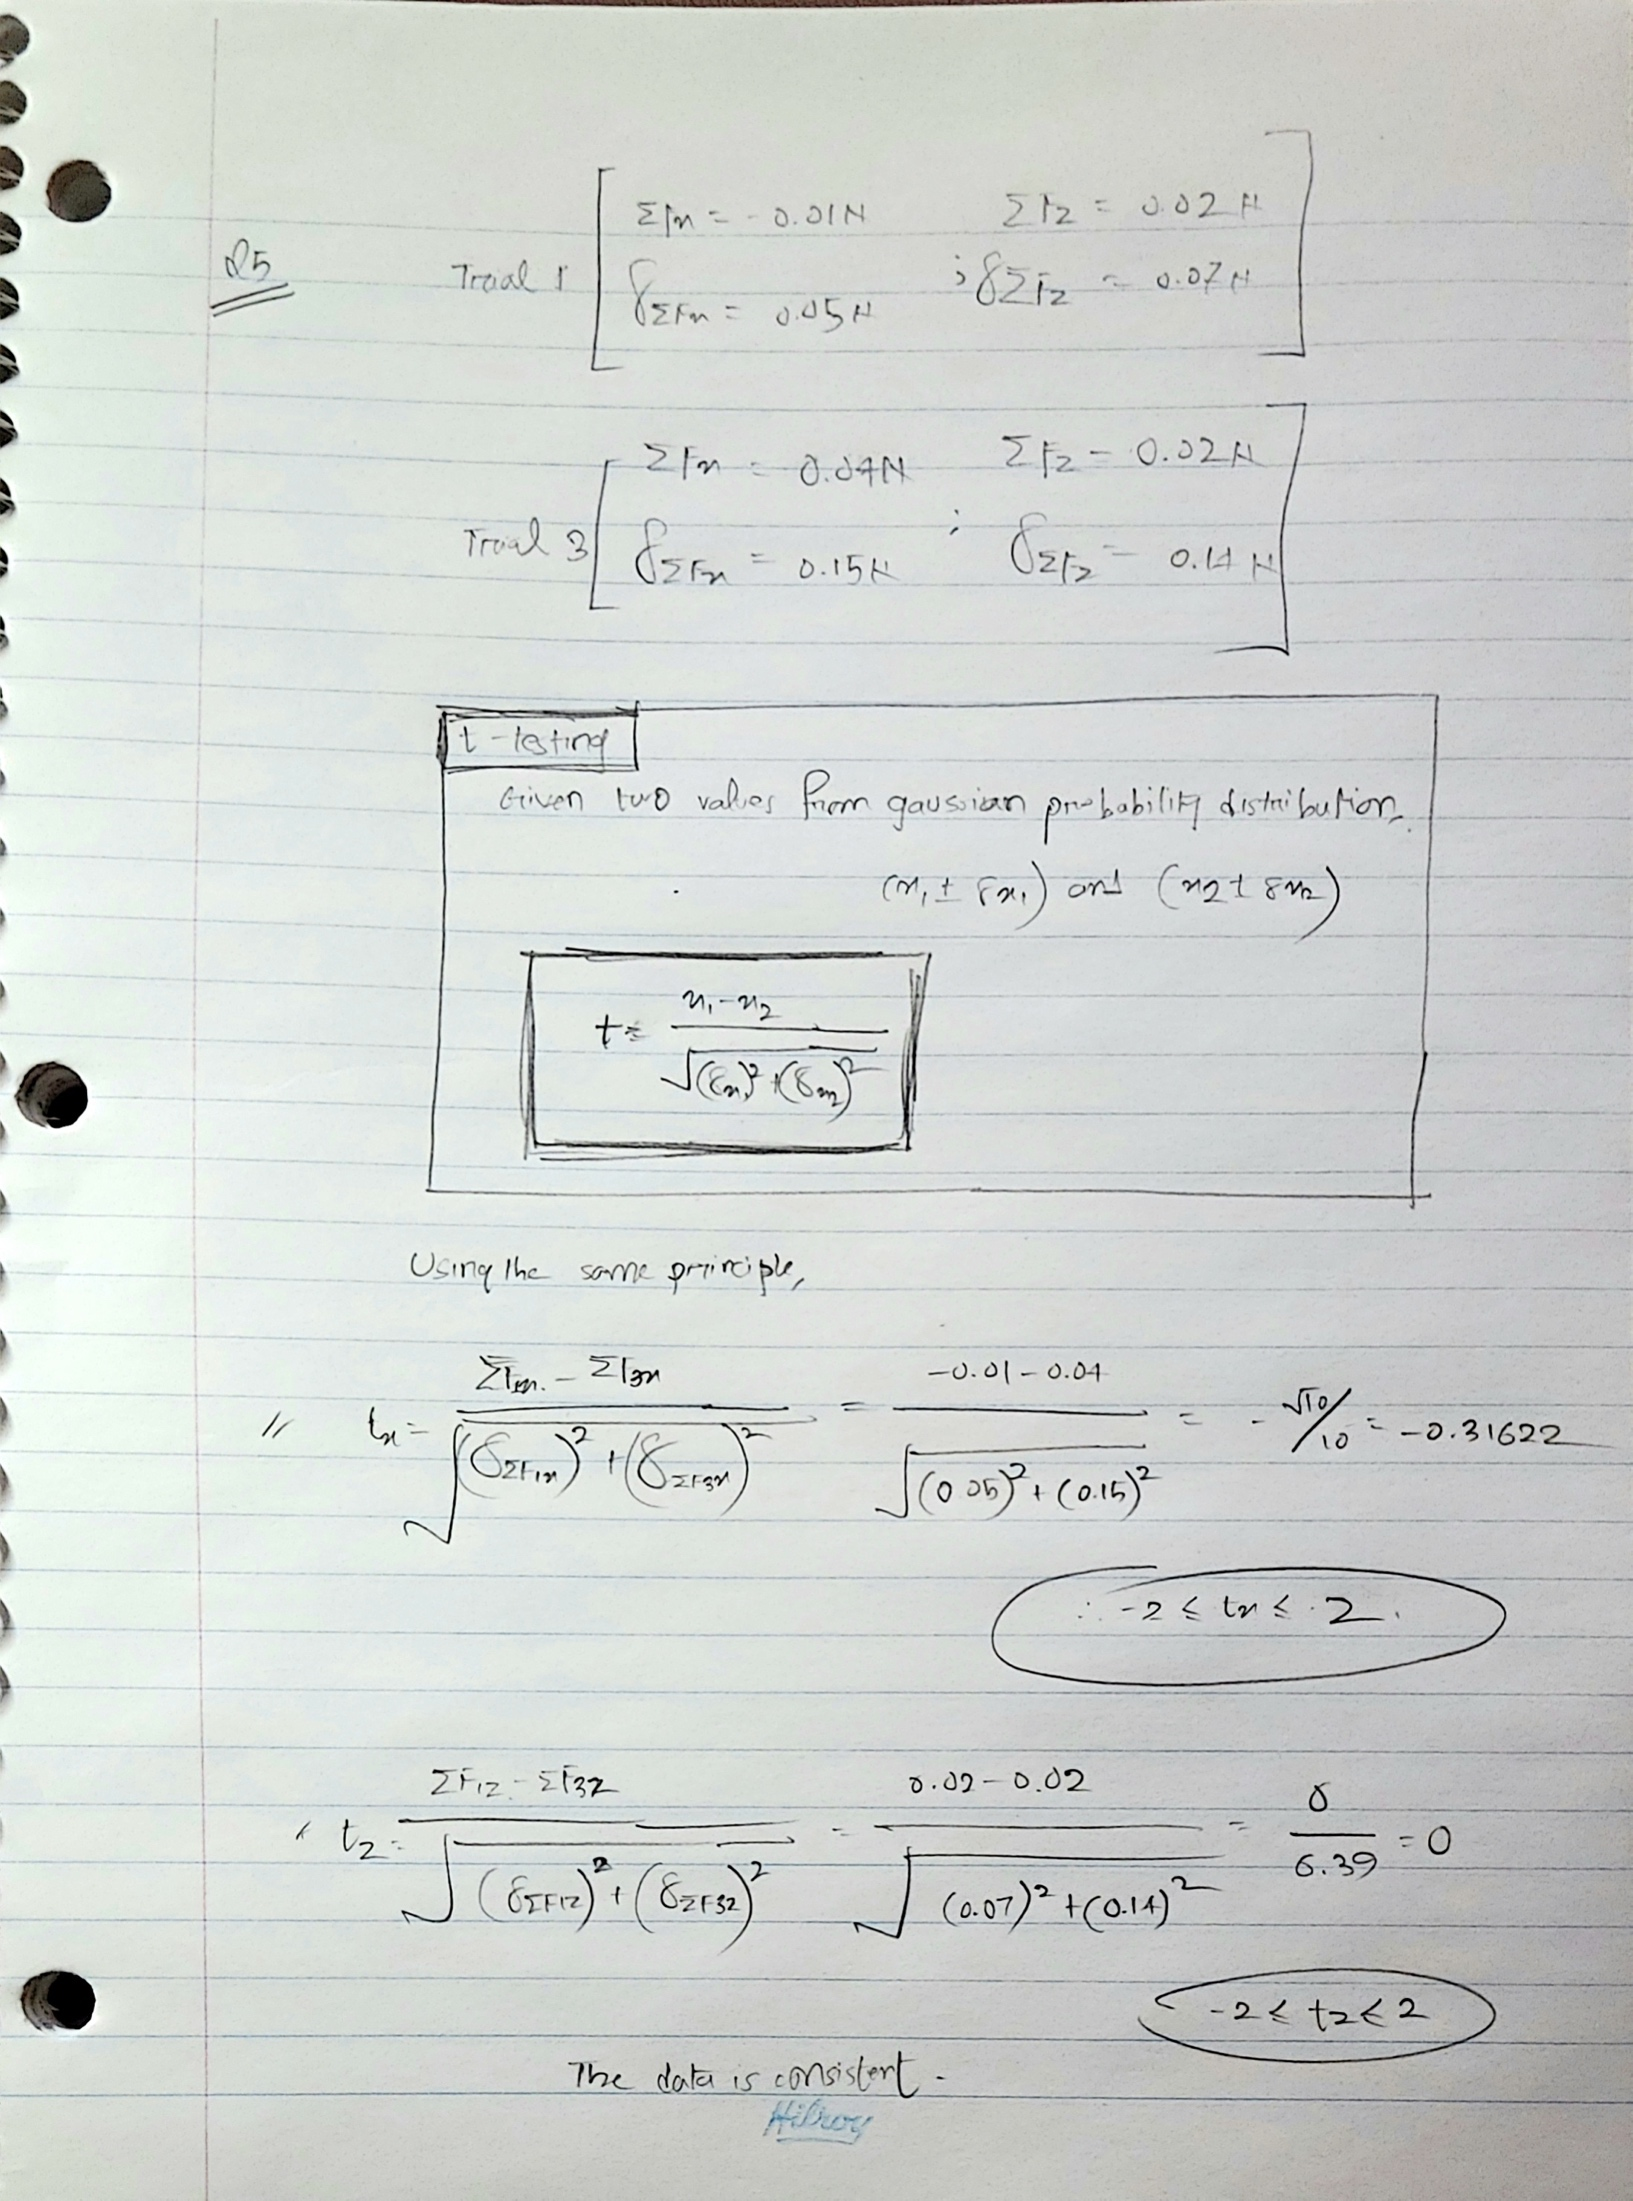 Q5
Trial 1
ΣFx = -0.01N ΣFz = 0.02 N
δΣFx = 0.05N ; δΣFz = 0.07N
Trial 3
ΣFx = 0.04N ΣFz = 0.02N
δΣFx = 0.15N ; δΣFz = 0.14 N
t-testing
Given two values from gaussian probability distribution,
(x₁ ± δx₁) and (x2 ± δx2)
t = x₁-x₂ / √((δx₁)²+(δx₂)²)
Using the same principle,
// tx = ΣF1x - ΣF3x / √((δΣF1x)² + (δΣF3x)²) = -0.01-0.04 / √((0.05)² + (0.15)²) = -√10/10 = -0.31622
∴ -2 ≤ tx ≤ 2.
tz = ΣF1z - ΣF3z / √((δΣF1z)² + (δΣF3z)²) = 0.02-0.02 / √((0.07)² + (0.14)²) = 0/6.39 = 0
-2 ≤ tz ≤ 2
The data is consistent.
Hilroy